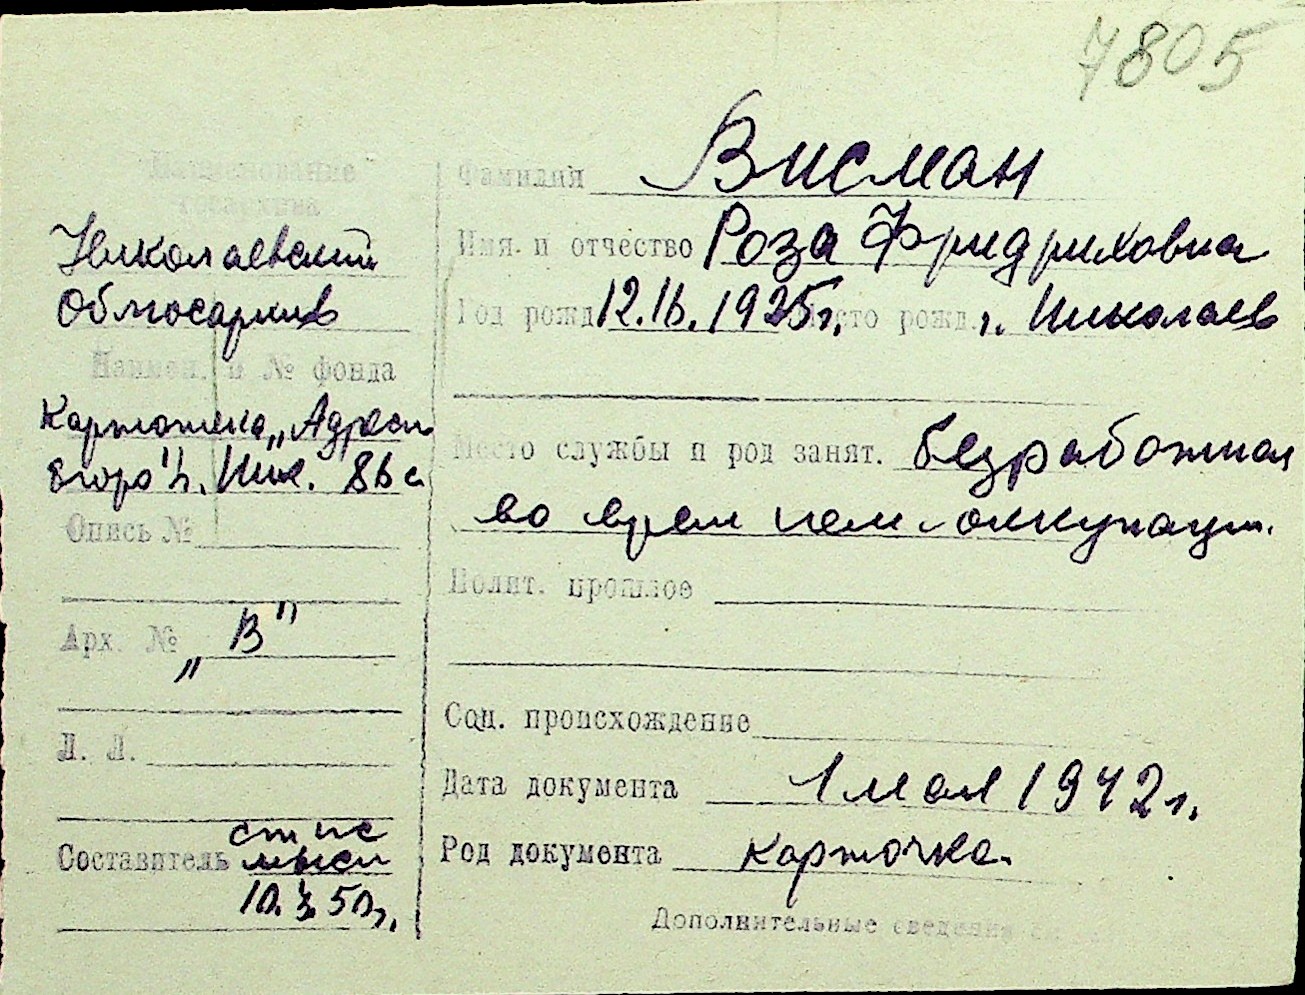 7805
Наименование
госархива
Николаевский
Облгосархив
Наимен. и № фонда
Картотека „Адресн
бюро" г. Ник.
Опись №
Арх. № „В"
Л. Л.
Составитель
50г.
Фамилия Висман
Имя и отчество Роза Фридриховна
Год рожд. 1925г. Место рожд. г. Николаев
Место службы и род занят. безработная
во врем нем. оккупац.
Полит. прошлое
Соц. происхождение
Дата документа 1 мая 1942г.
Род документа карточка.
Дополнительные сведения